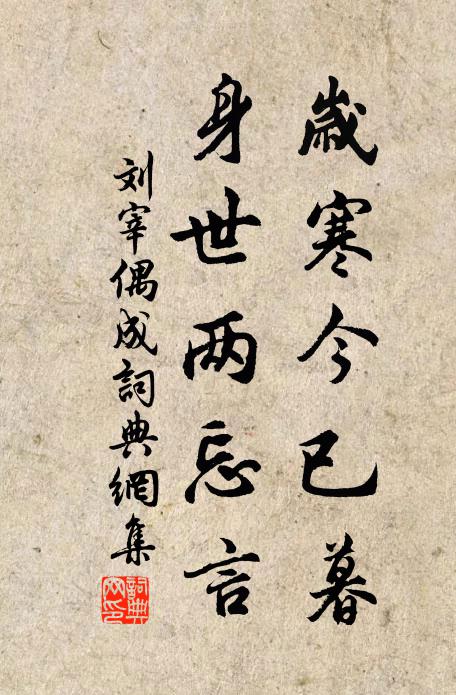 歲寒今已暮
身世两忘言
刘宰偶成詞典網集
詞典
网印